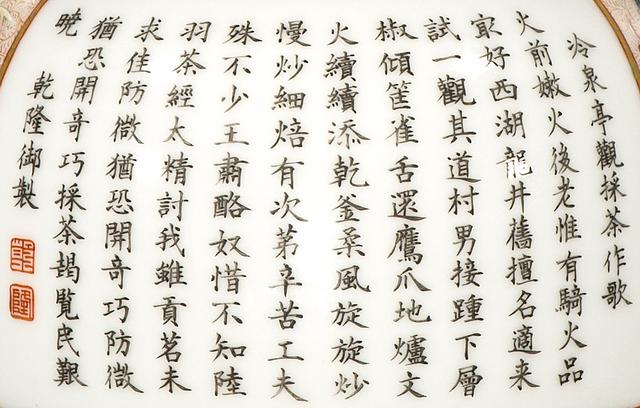 冷泉亭觀採茶作歌
火前嫩火後老惟有騎火品
㝡好西湖龍井舊擅名適來
試一觀其道村男接踵下層
椒傾筐雀舌還鷹爪地爐文
火續續添乾釜桑風旋旋炒
慢炒細焙有次第辛苦工夫
殊不少王肅酪奴惜不知陸
羽茶經太精討我雖貢茗未
求佳防微猶恐開奇巧防微
猶恐開奇巧採茶朅覧民艱
曉
乾隆御製